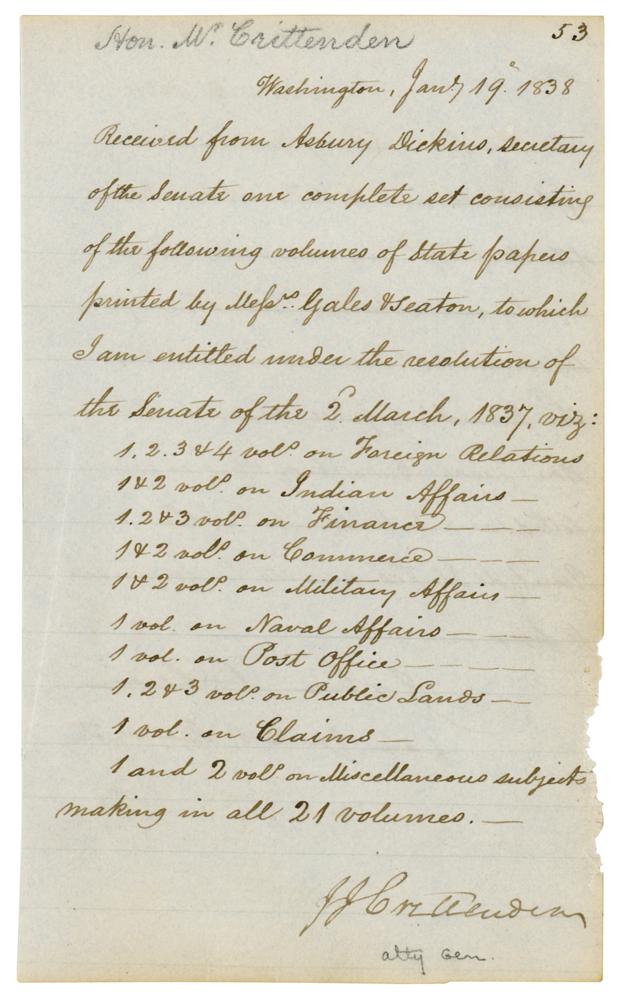 Hon. Mr. Crittenden
53
Washington, Jany 19th 1838
Received from Asbury Dickins, secretary
of the Senate one complete set consisting
of the following volumes of State papers
printed by Messrs. Gales & Seaton, to which
I am entitled under the resolution of
the Senate of the 2d March, 1837, viz:
1. 2. 3 & 4 vols. on Foreign Relations
1 & 2 vols. on Indian Affairs —
1. 2 & 3 vols. on Finance — — —
1 & 2 vols. on Commerce — — —
1 & 2 vols. on Military Affairs —
1 vol. on Naval Affairs — — —
1 vol. on Post Office — — — —
1. 2 & 3 vols. on Public Lands —
1 vol. on Claims —
1 and 2 vols on Miscellaneous subjects
making in all 21 volumes. —
J J Crittenden
atty Gen.